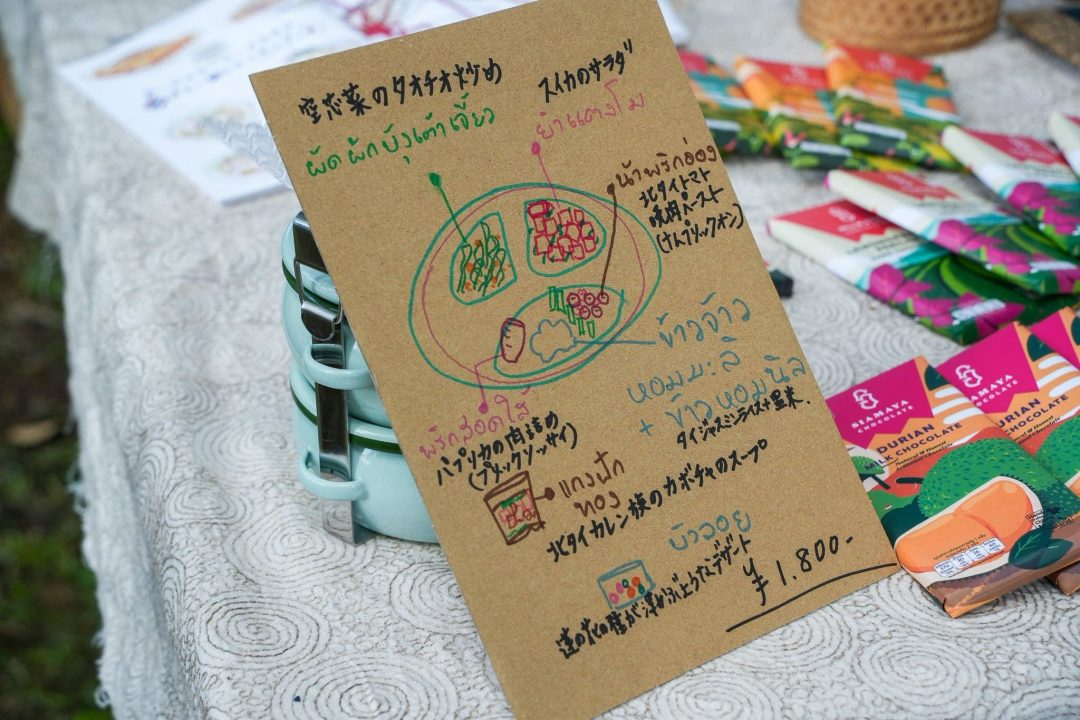 空芯菜のタオチオ炒め
ผัดผักบุ้งเต้าเจี้ยว
スイカのサラダ
ยำแตงโม
น้ำพริกอ่อง
北タイトマト
(ナムプリックオン)
ข้าวจ้าว
หอมมะลิ
+ ข้าวหอมนิล
タイジャスミンライス+黒米.
พริกสอดไส้
パプリカの肉詰め
แกงฟัก
ทอง
北タイカレン族のカボチャのスープ
บัวลอย
¥1.800-
SIAMAYA
CHOCOLATE
DURIAN
MILK CHOCOLATE
Natural & Honest
SIAMAYA
CHOCOLATE
DURIAN
CHOCOLATE